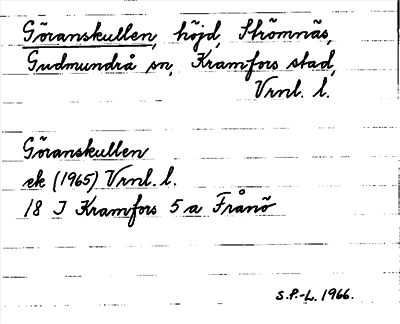 Göranskullen, höjd, Strömnäs,
Gudmundrå sn, Kramfors stad,
Vrnl. l.
Göranskullen
ek (1965) Vrnl. l.
18 I Kramfors 5 a Frånö
S.P.-L. 1966.